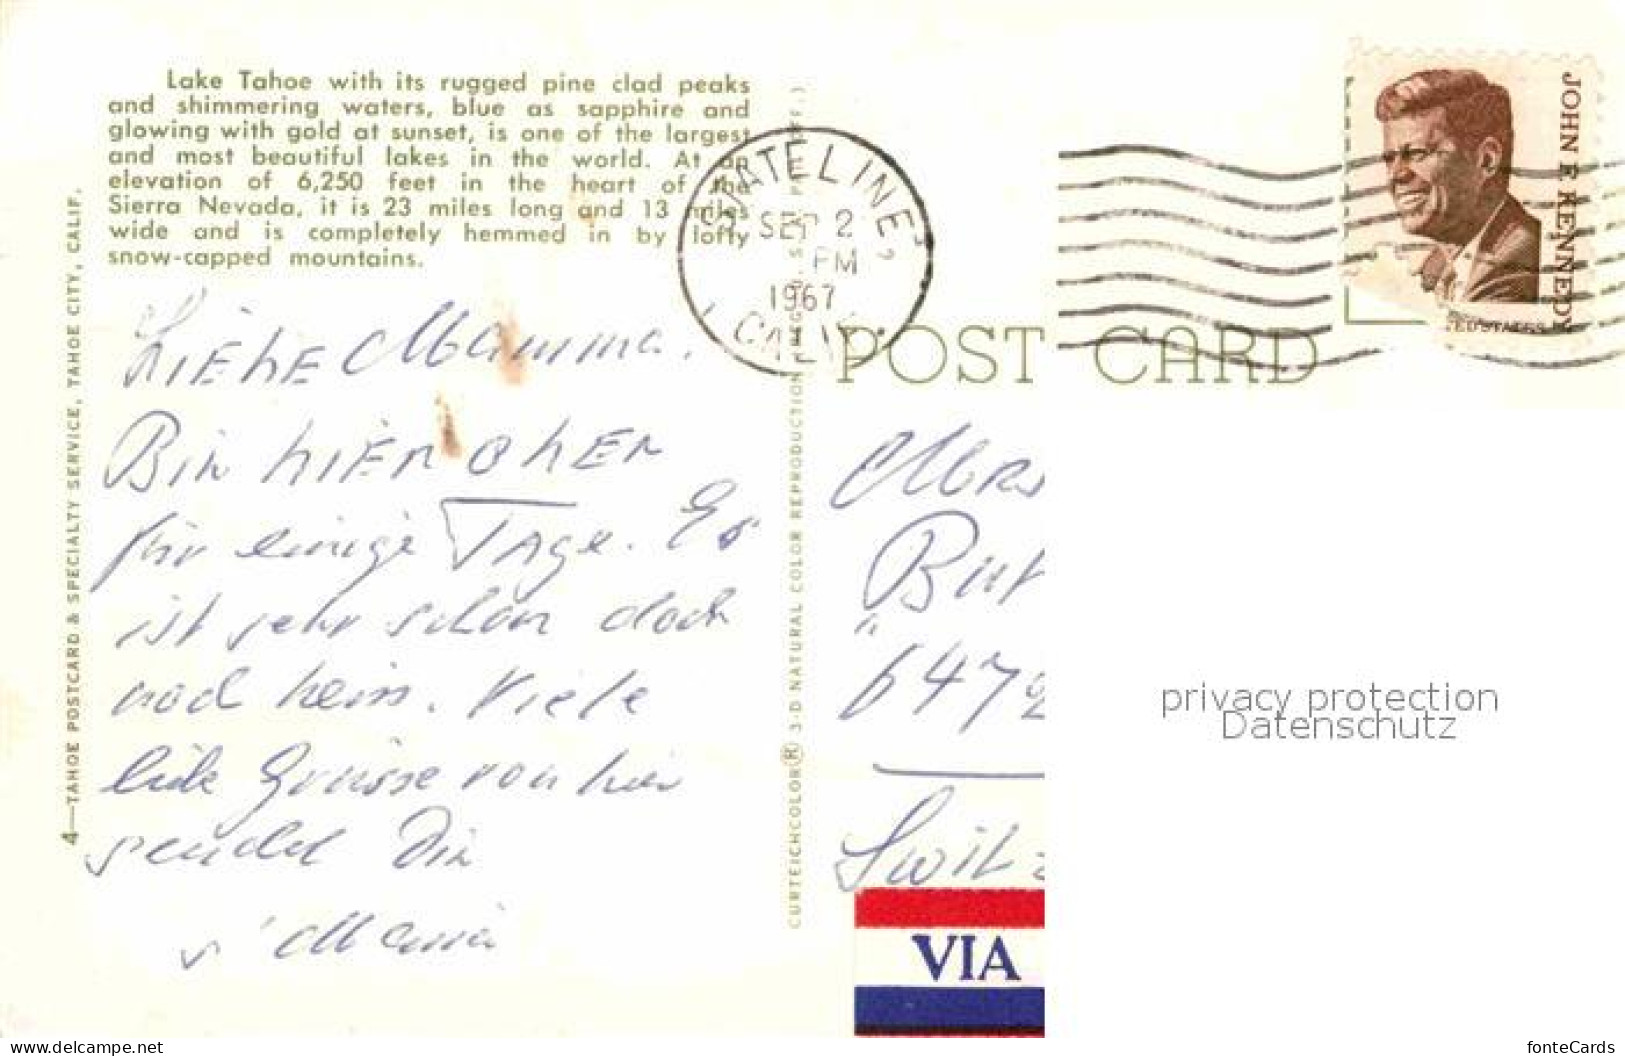 Lake Tahoe with its rugged pine clad peaks
and shimmering waters, blue as sapphire and
glowing with gold at sunset, is one of the largest
and most beautiful lakes in the world. At an
elevation of 6,250 feet in the heart of the
Sierra Nevada, it is 23 miles long and 13 miles
wide and is completely hemmed in by lofty
snow-capped mountains.
4—TAHOE POSTCARD & SPECIALTY SERVICE, TAHOE CITY, CALIF.
Liebe Mamma!
Bin hier oben
für einige Tage. Es
ist sehr schön doch
Viele
liebe Grüsse von hier
sendet Dir
CURTEICHCOLOR® 3-D NATURAL COLOR REPRODUCTION
STATELINE,
SEP 2
PM
1967
CALIF.
POST CARD
JOHN F. KENNEDY
Mrs
647
Switz
VIA
privacy protection
Datenschutz
www.delcampe.net
fonteCards